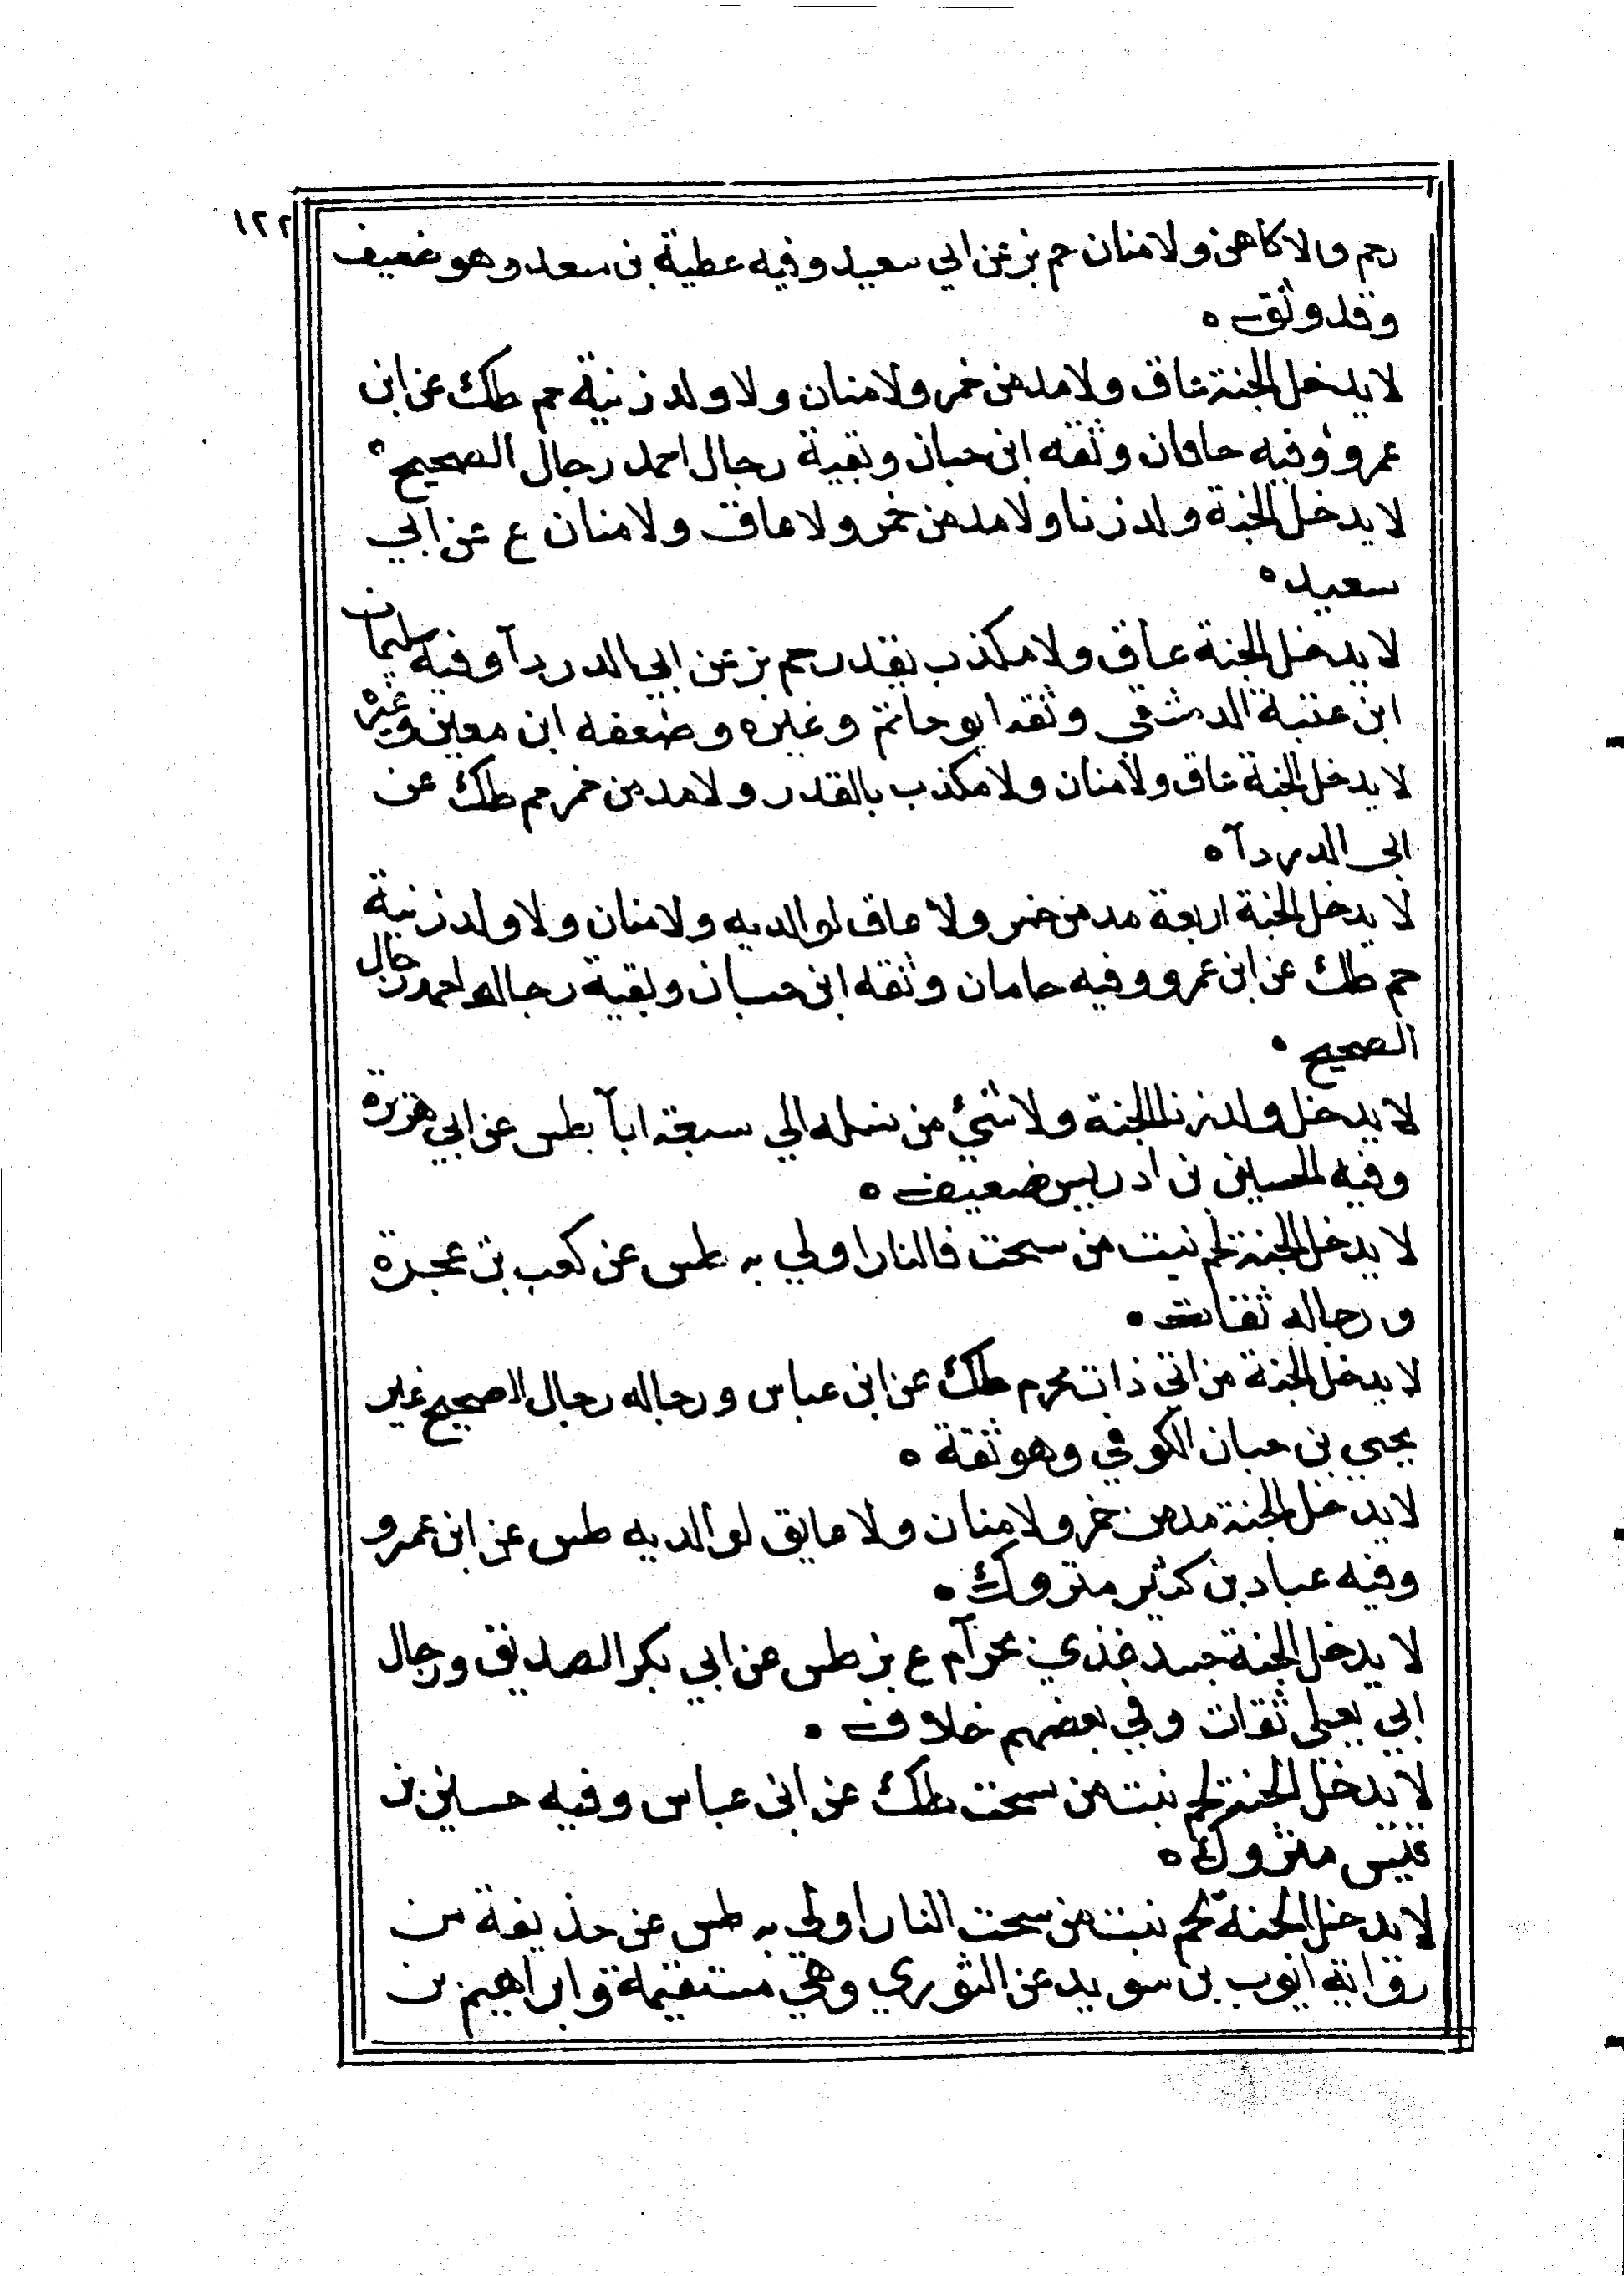 ١٢٢
رحم ولا كاهن ولا منان حم بز عن ابي سعيد وفيه عطية بن سعد وهو ضعيف
وقد وثق ه
لا يدخل الجنة عاق ولا مدمن خمر ولا منان ولا ولد زنية حم طك عن ابن
عمرو وفيه جابان وثقه ابن حبان وبقية رجال احمد رجال الصحيح ه
لا يدخل الجنة ولد زنا ولا مدمن خمر ولا عاق ولا منان ع عن ابي
سعيد ه
لا يدخل الجنة عاق ولا مكذب بقدر حم بز عن ابي الدردآ وفيه سليمان
ابن عتبة الدمشقي وثقه ابو حاتم وغيره وضعفه ابن معين وغيره
لا يدخل الجنة عاق ولا منان ولا مكذب بالقدر ولا مدمن خمر حم طك عن
ابى الدردآ ه
لا يدخل الجنة اربعة مدمن خمر ولا عاق لوالديه ولا منان ولا ولد زنية
حم طك عن ابن عمرو وفيه جابان وثقه ابن حبان وبقية رجاله احمد رجال
الصحيح ه
لا يدخل ولد زنا الجنة ولا شئ من نسله الي سبعة اباآ طس عن ابي هريرة
وفيه الحسين بن ادريس ضعيف ه
لا يدخل الجنة لحم نبت من سحت فالنار اولي به طس عن كعب بن عجرة
ورجاله ثقات ه
لا يدخل الجنة من اتى ذات محرم طك عن ابن عباس ورجاله رجال الصحيح غير
يحيي بن حبان الكوفي وهو ثقة ه
لا يدخل الجنة مدمن خمر ولا منان ولا عايق لوالديه طس عن ابن عمرو
وفيه عباد بن كثير متروك ه
لا يدخل الجنة جسد غذي بحرآم ع بز طس عن ابي بكر الصديق ورجال
ابي يعلى ثقات وفي بعضهم خلاف ه
لا يدخل الجنة لحم نبت من سحت طك عن ابن عباس وفيه حسين بن
قيس متروك ه
لا يدخل الجنة لحم نبت من سحت النار اولي به طس عن حذيفة من
رواية ايوب بن سويد عن الثوري وهي مستقيمة وابراهيم بن